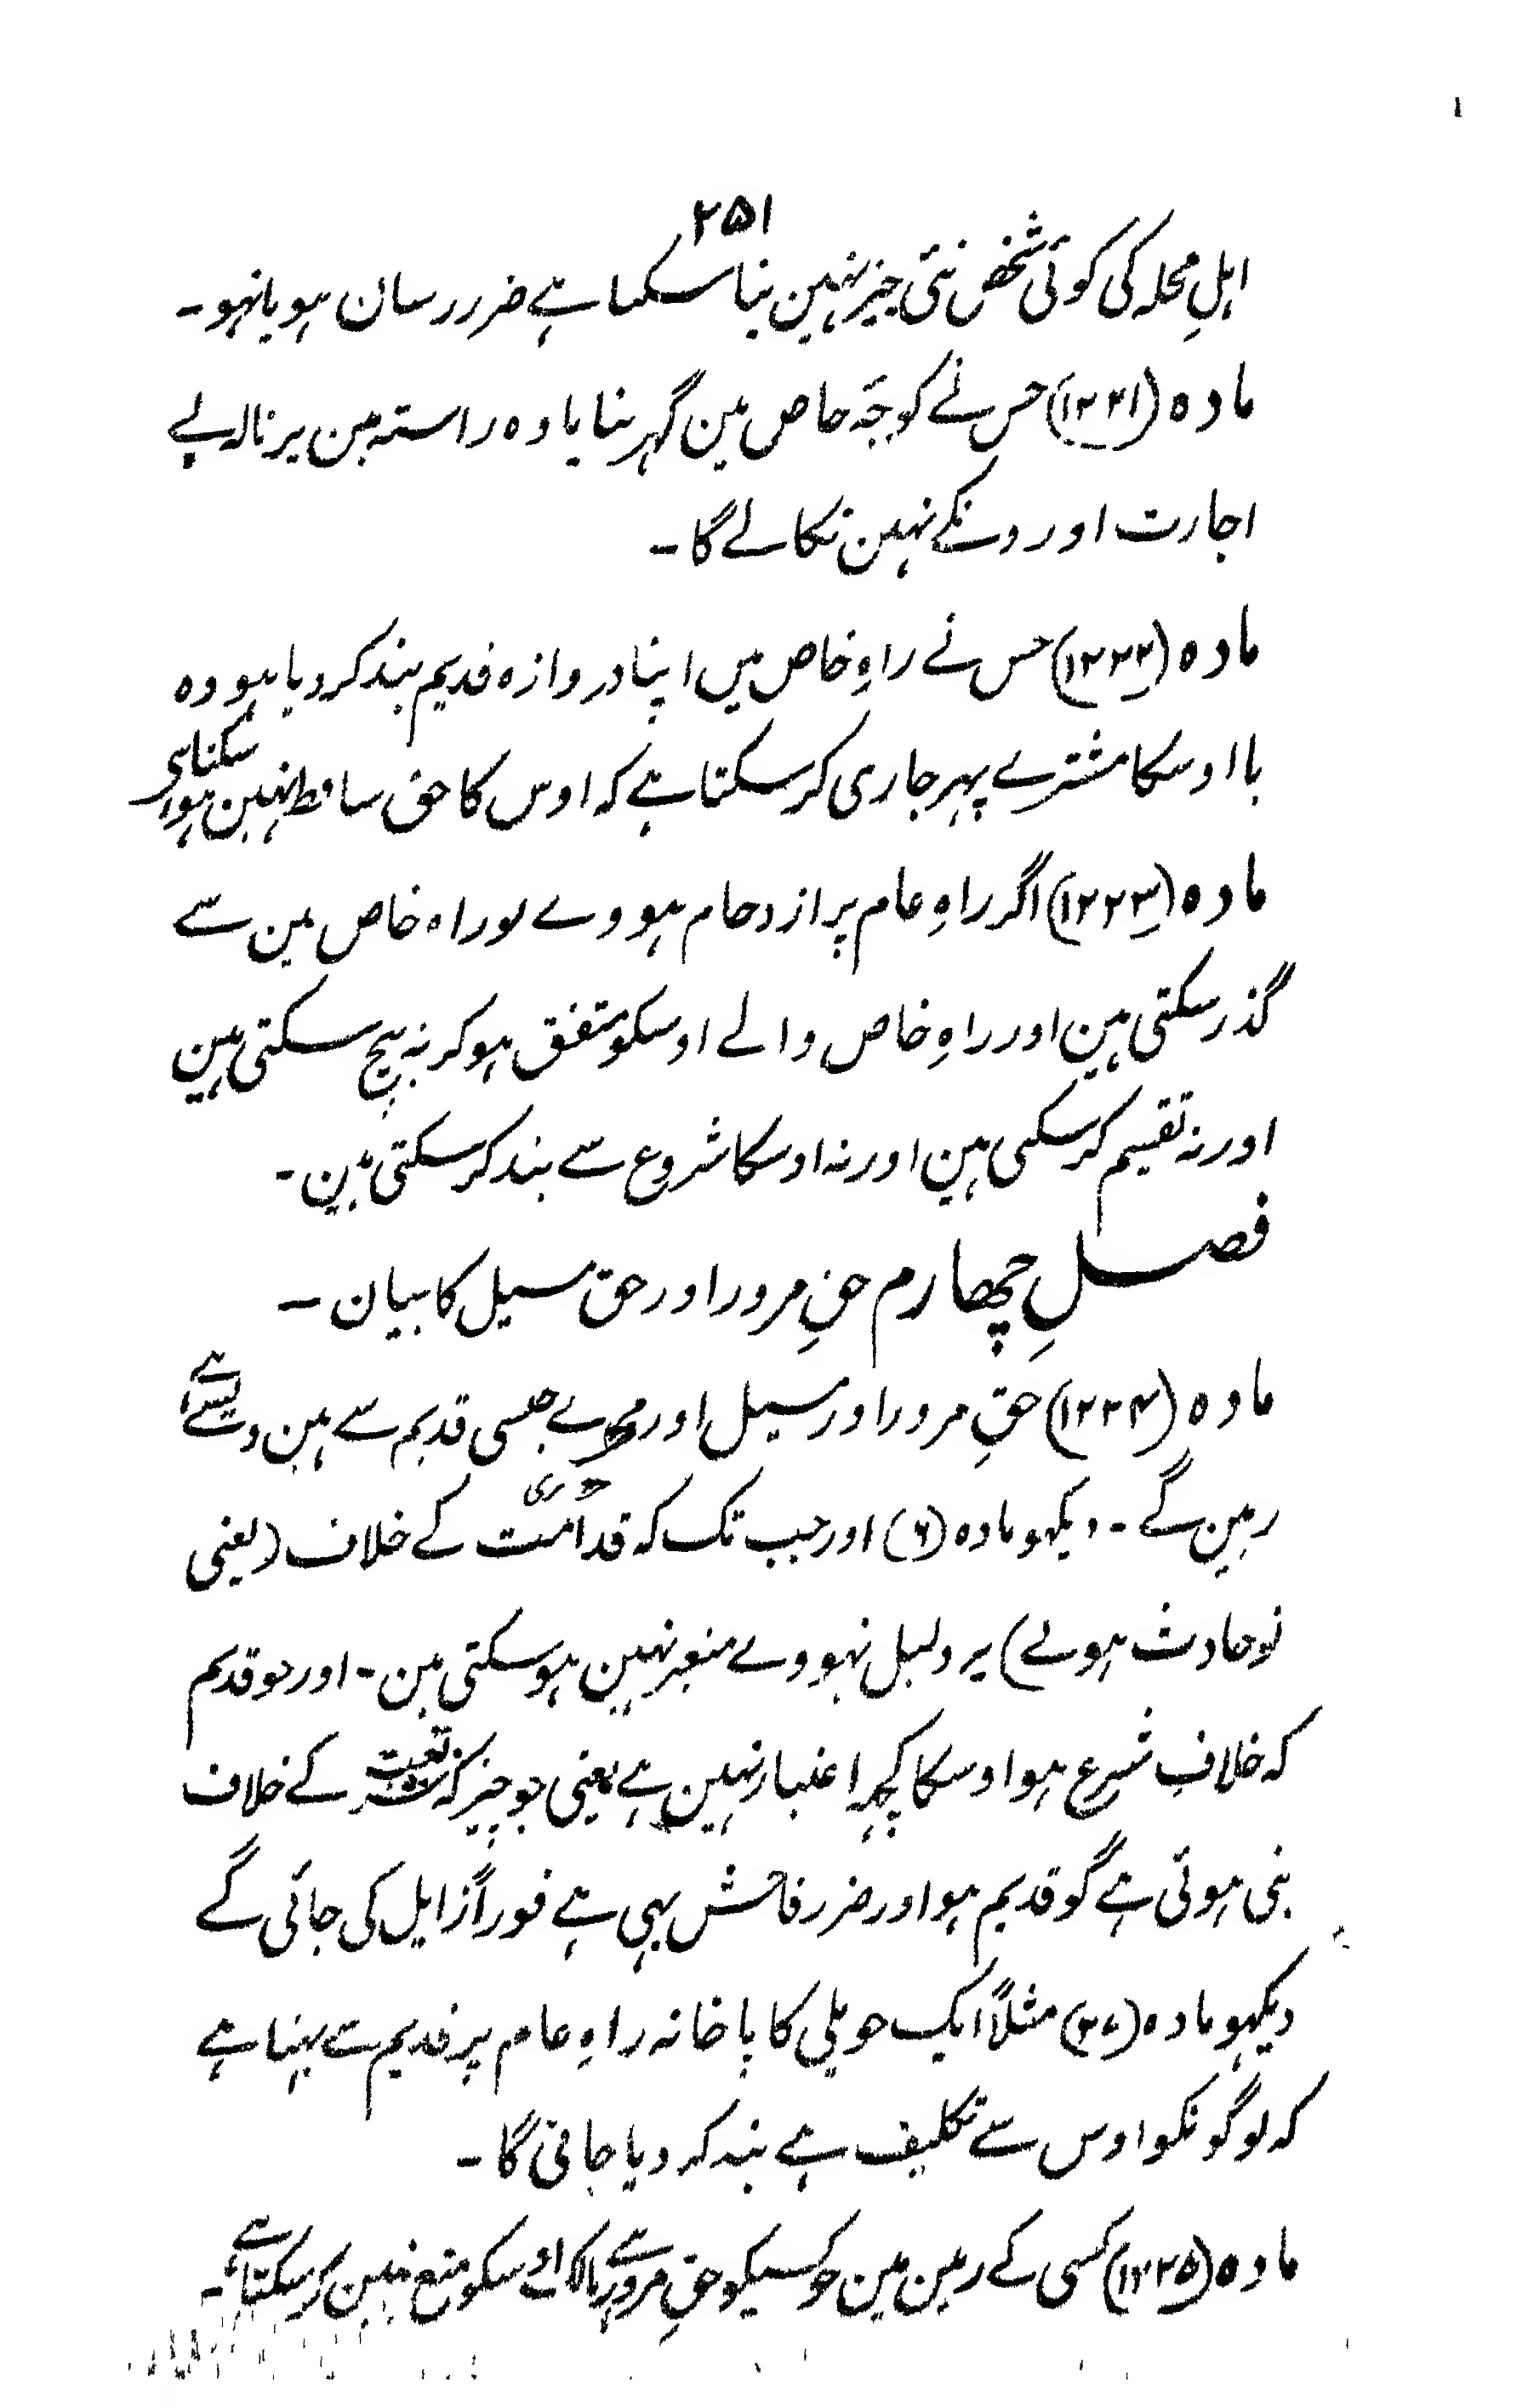 ۲۵۱
اہلِ محلہ کی کوئی شخص نئی چیز نہین بنا سکتا ہے ضرر رسان ہو یا نہو۔
مادہ (۱۲۲۱) جس نے کوچۂ خاص مین گہر بنایا وہ راستہ مین پرنالہ بے
اجازت اوردنکے نہین نکالے گا۔
مادہ (۱۲۲۲) جس نے راہِ خاص میں اپنا دروازہ قدیم بند کر دیا ہو وہ
یا اوسکا مشترے پہر جاری کر سکتا ہے کہ اوس کا حق ساقط نہین ہو سکتا ہی
مادہ (۱۲۲۳) اگر راہِ عام پر ازدحام ہووے تو راہ خاص مین سے
گذر سکتی ہین اور راہِ خاص والے اوسکو متفق ہو کر نہ بیچ سکتی ہین
اور نہ تقسیم کر سکتی ہین اور نہ اوسکا شروع سے بند کر سکتی ہین۔
فصلِ چہارم حقِ مرور اور حق مسیل کا بیان ۔
مادہ (۱۲۲۴) حقِ مرور اور مسیل اور مجرے جیسی قدیم سے ہین ویسے ہے
رہین گے ۔ دیکہو مادہ (۶) اور جب تک کہ قدامت کے خلاف (یعنی
نو حادث ہونے) پر دلیل نہووے متغیر نہین ہو سکتی ہین ۔ اور جو قدیم
کہ خلافِ شرع ہو اوسکا کچہہ اعتبار نہین ہے یعنی جو چیز کہ شریعت کے خلاف
بنی ہوئی ہے گو قدیم ہو اور ضرر فاحش بہی ہے فوراً زایل کی جائی گے
دیکہو مادہ (۲۷) مثلاً ایک حویلی کا پاخانہ راہِ عام پر قدیم سے بہتا ہے
کہ لوگونکو اوس سے تکلیف ہے بند کر دیا جائی گا۔
مادہ (۱۲۲۵) کسی کے زمین مین جو کسیکو حقِ مرور ہے مالک اوسکو منع نہین کر سکتا ہے۔